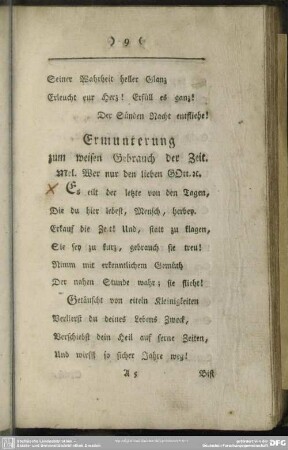 ) 9 (
Seiner Wahrheit heller Glanz
Erleucht eur Herz! Erfüll es ganz!
Der Sünden Nacht entfliehe!
Ermunterung
zum weisen Gebrauch der Zeit.
Mel. Wer nur den lieben GOtt. ꝛc.
Es eilt der letzte von den Tagen,
Die du hier lebest, Mensch, herbey.
Erkauf die Zeit! Und, statt zu klagen,
Sie sey zu kurz, gebrauch sie treu!
Nimm mit erkenntlichem Gemüth
Der nahen Stunde wahr; sie flieht!
Getäuscht von eiteln Kleinigkeiten
Verlierst du deines Lebens Zweck,
Verschiebst dein Heil auf ferne Zeiten,
Und wirfst so sicher Jahre weg!
A 5 Bist
DFG